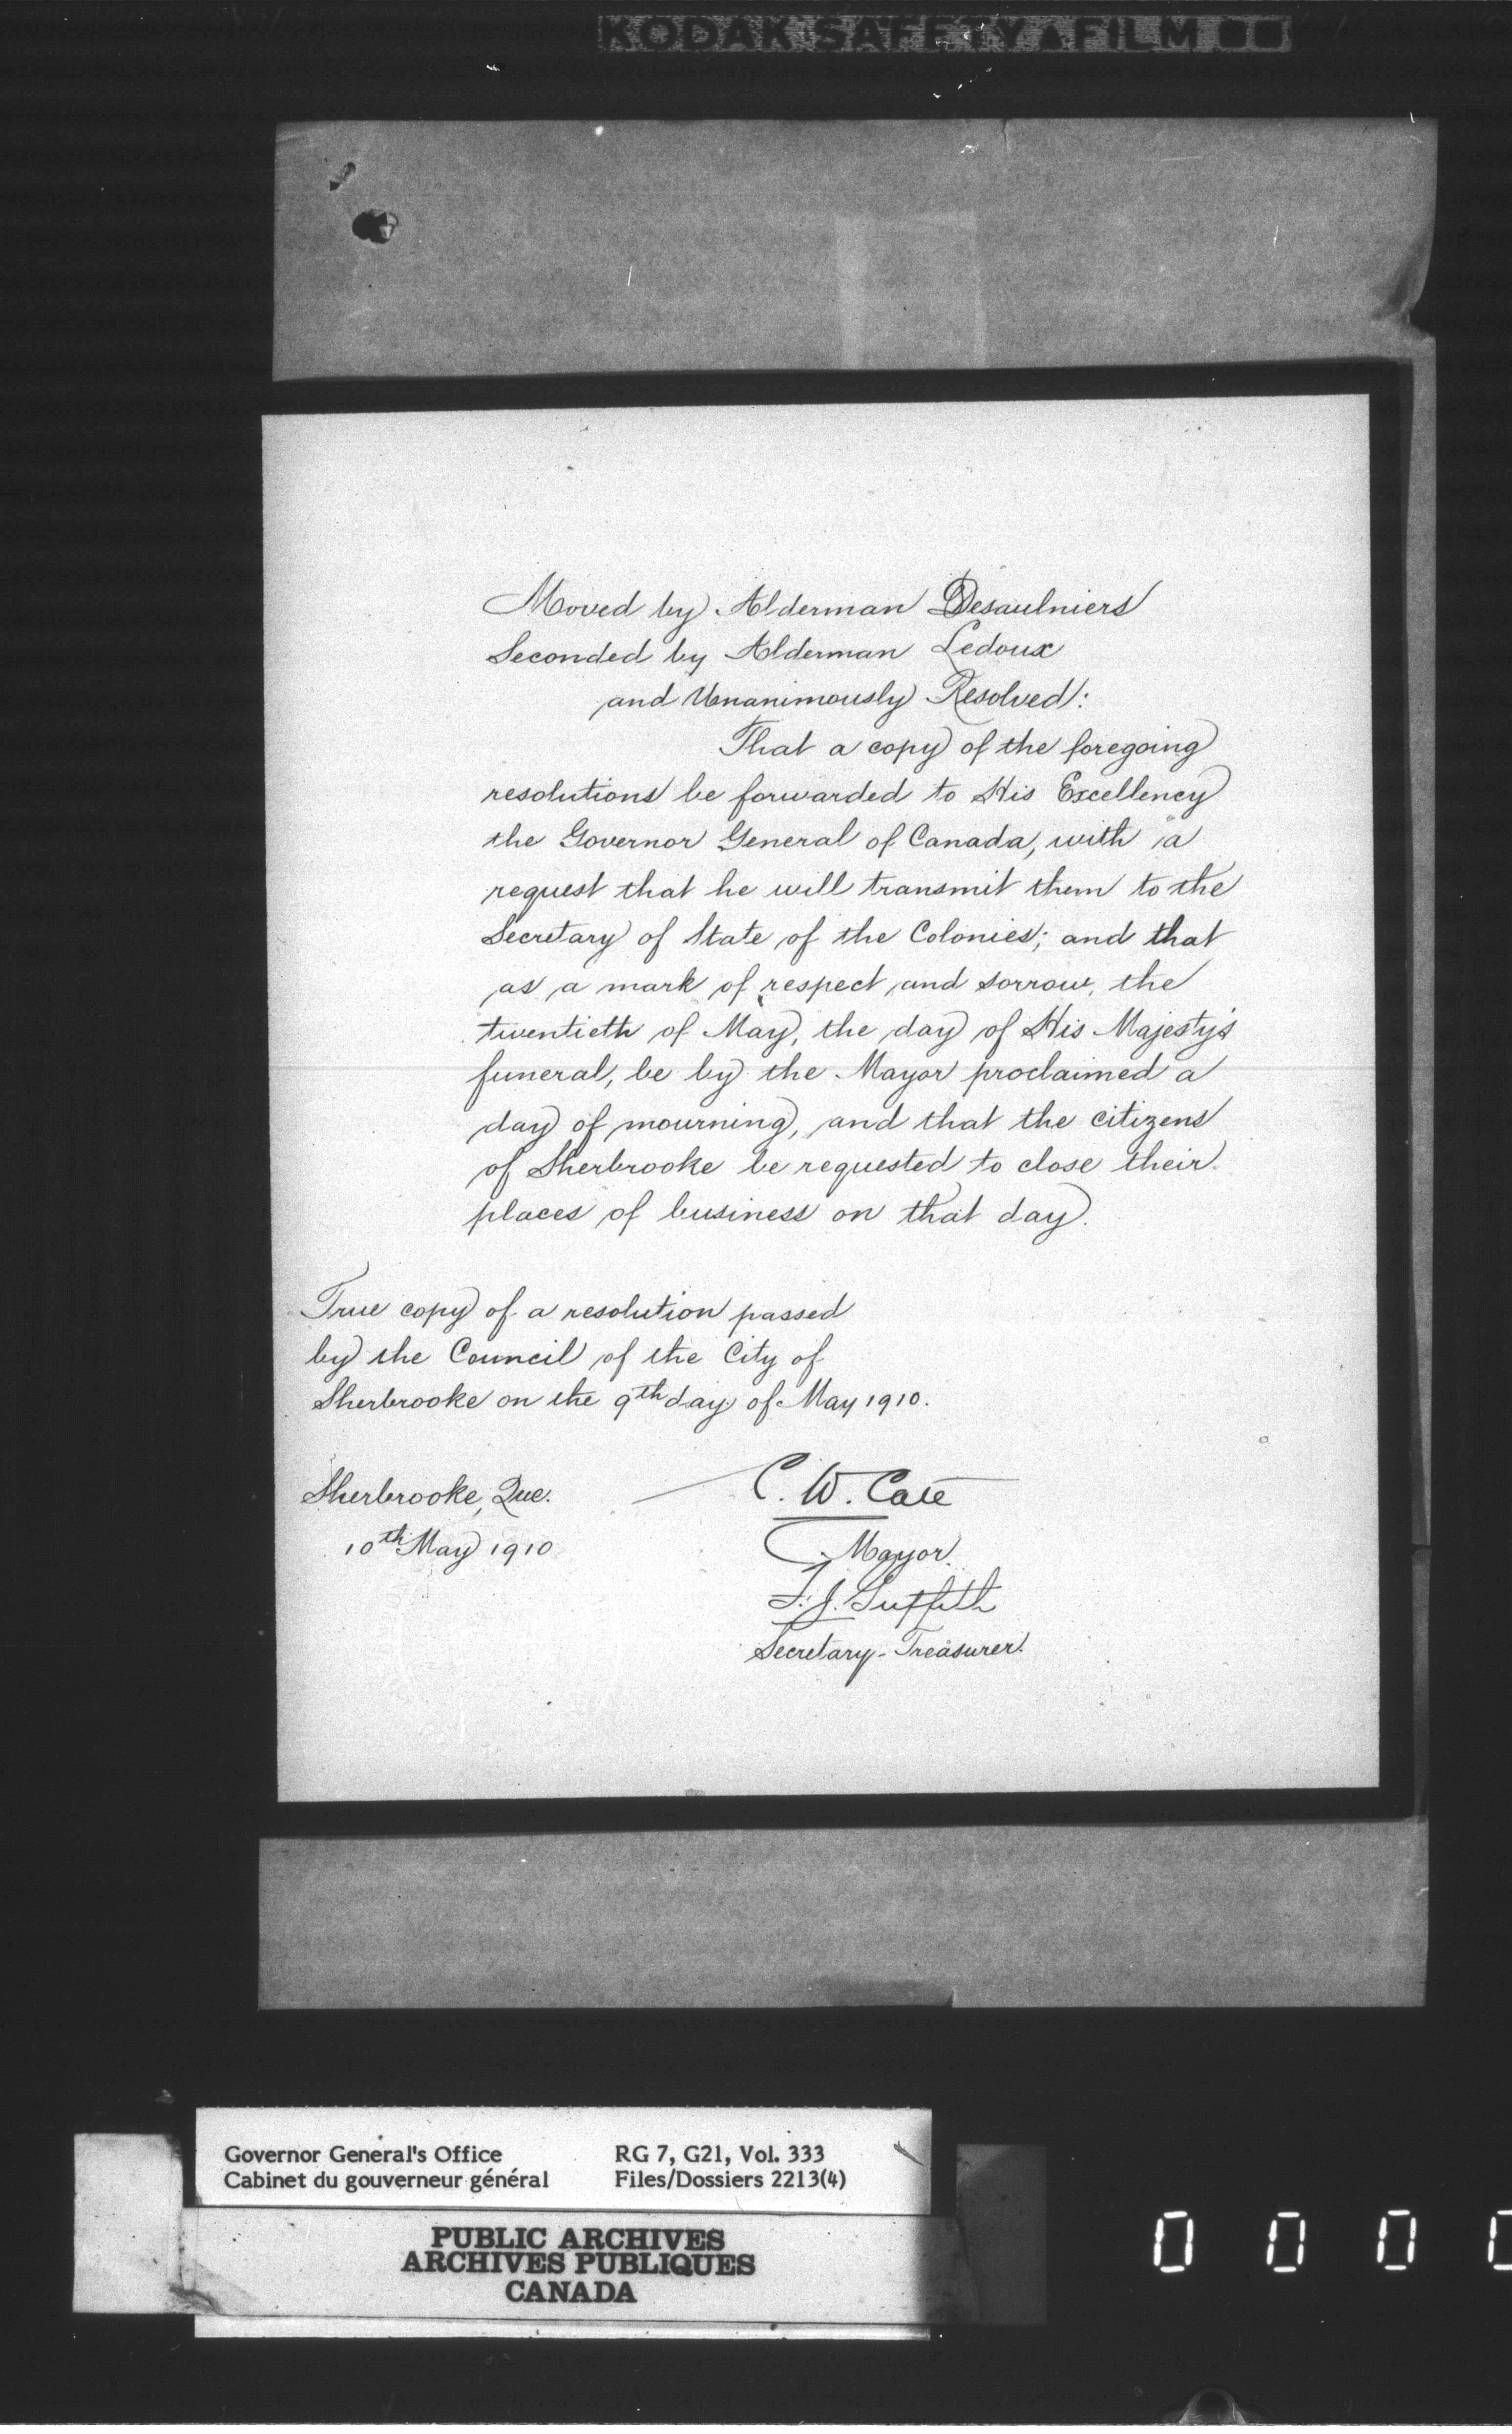 KODAK SAFETY FILM
Moved by Alderman Desaulniers
Seconded by Alderman Ledoux
and Unanimously Resolved:
That a copy of the foregoing
resolutions be forwarded to His Excellency
the Governor General of Canada, with a
request that he will transmit them to the
Secretary of State of the Colonies; and that
as a mark of respect and sorrow, the
twentieth of May, the day of His Majesty's
funeral, be by the Mayor proclaimed a
day of mourning, and that the citizens
of Sherbrooke be requested to close their
places of business on that day.
True copy of a resolution passed
by the Council of the City of
Sherbrooke on the 9th day of May 1910.
Sherbrooke, Que.
10th May 1910
C. W. Cate
Mayor.
J. Griffith
Secretary-Treasurer.
Governor General's Office
Cabinet du gouverneur général
RG 7, G21, Vol. 333
Files/Dossiers 2213(4)
PUBLIC ARCHIVES
ARCHIVES PUBLIQUES
CANADA
0 0 0